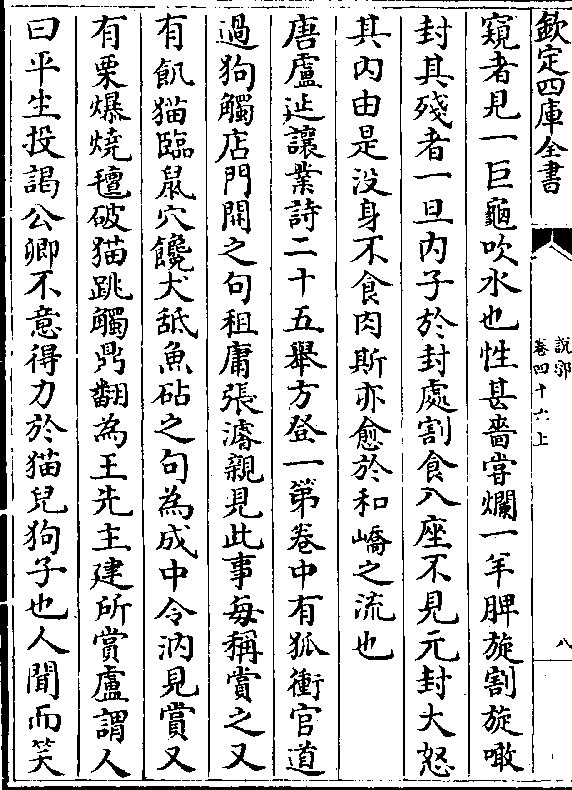 欽定四庫全書
說郛
卷四十六上
八
窺者見一巨龜吹水也性甚嗇甞爛一年脾旋割旋噉
封其殘者一旦内子於封處割食八座不見元封大怒
其内由是没身不食肉斯亦愈於和嶠之流也
唐盧延讓業詩二十五舉方登一第卷中有狐衝官道
過狗觸店門開之句租庸張濬親見此事每稱賞之又
有飢猫臨鼠穴饞犬舐魚砧之句為成中令汭見賞又
有栗爆燒氊破猫跳觸鼎翻為王先主建所賞盧謂人
曰平生投謁公卿不意得力於猫兒狗子也人聞而笑